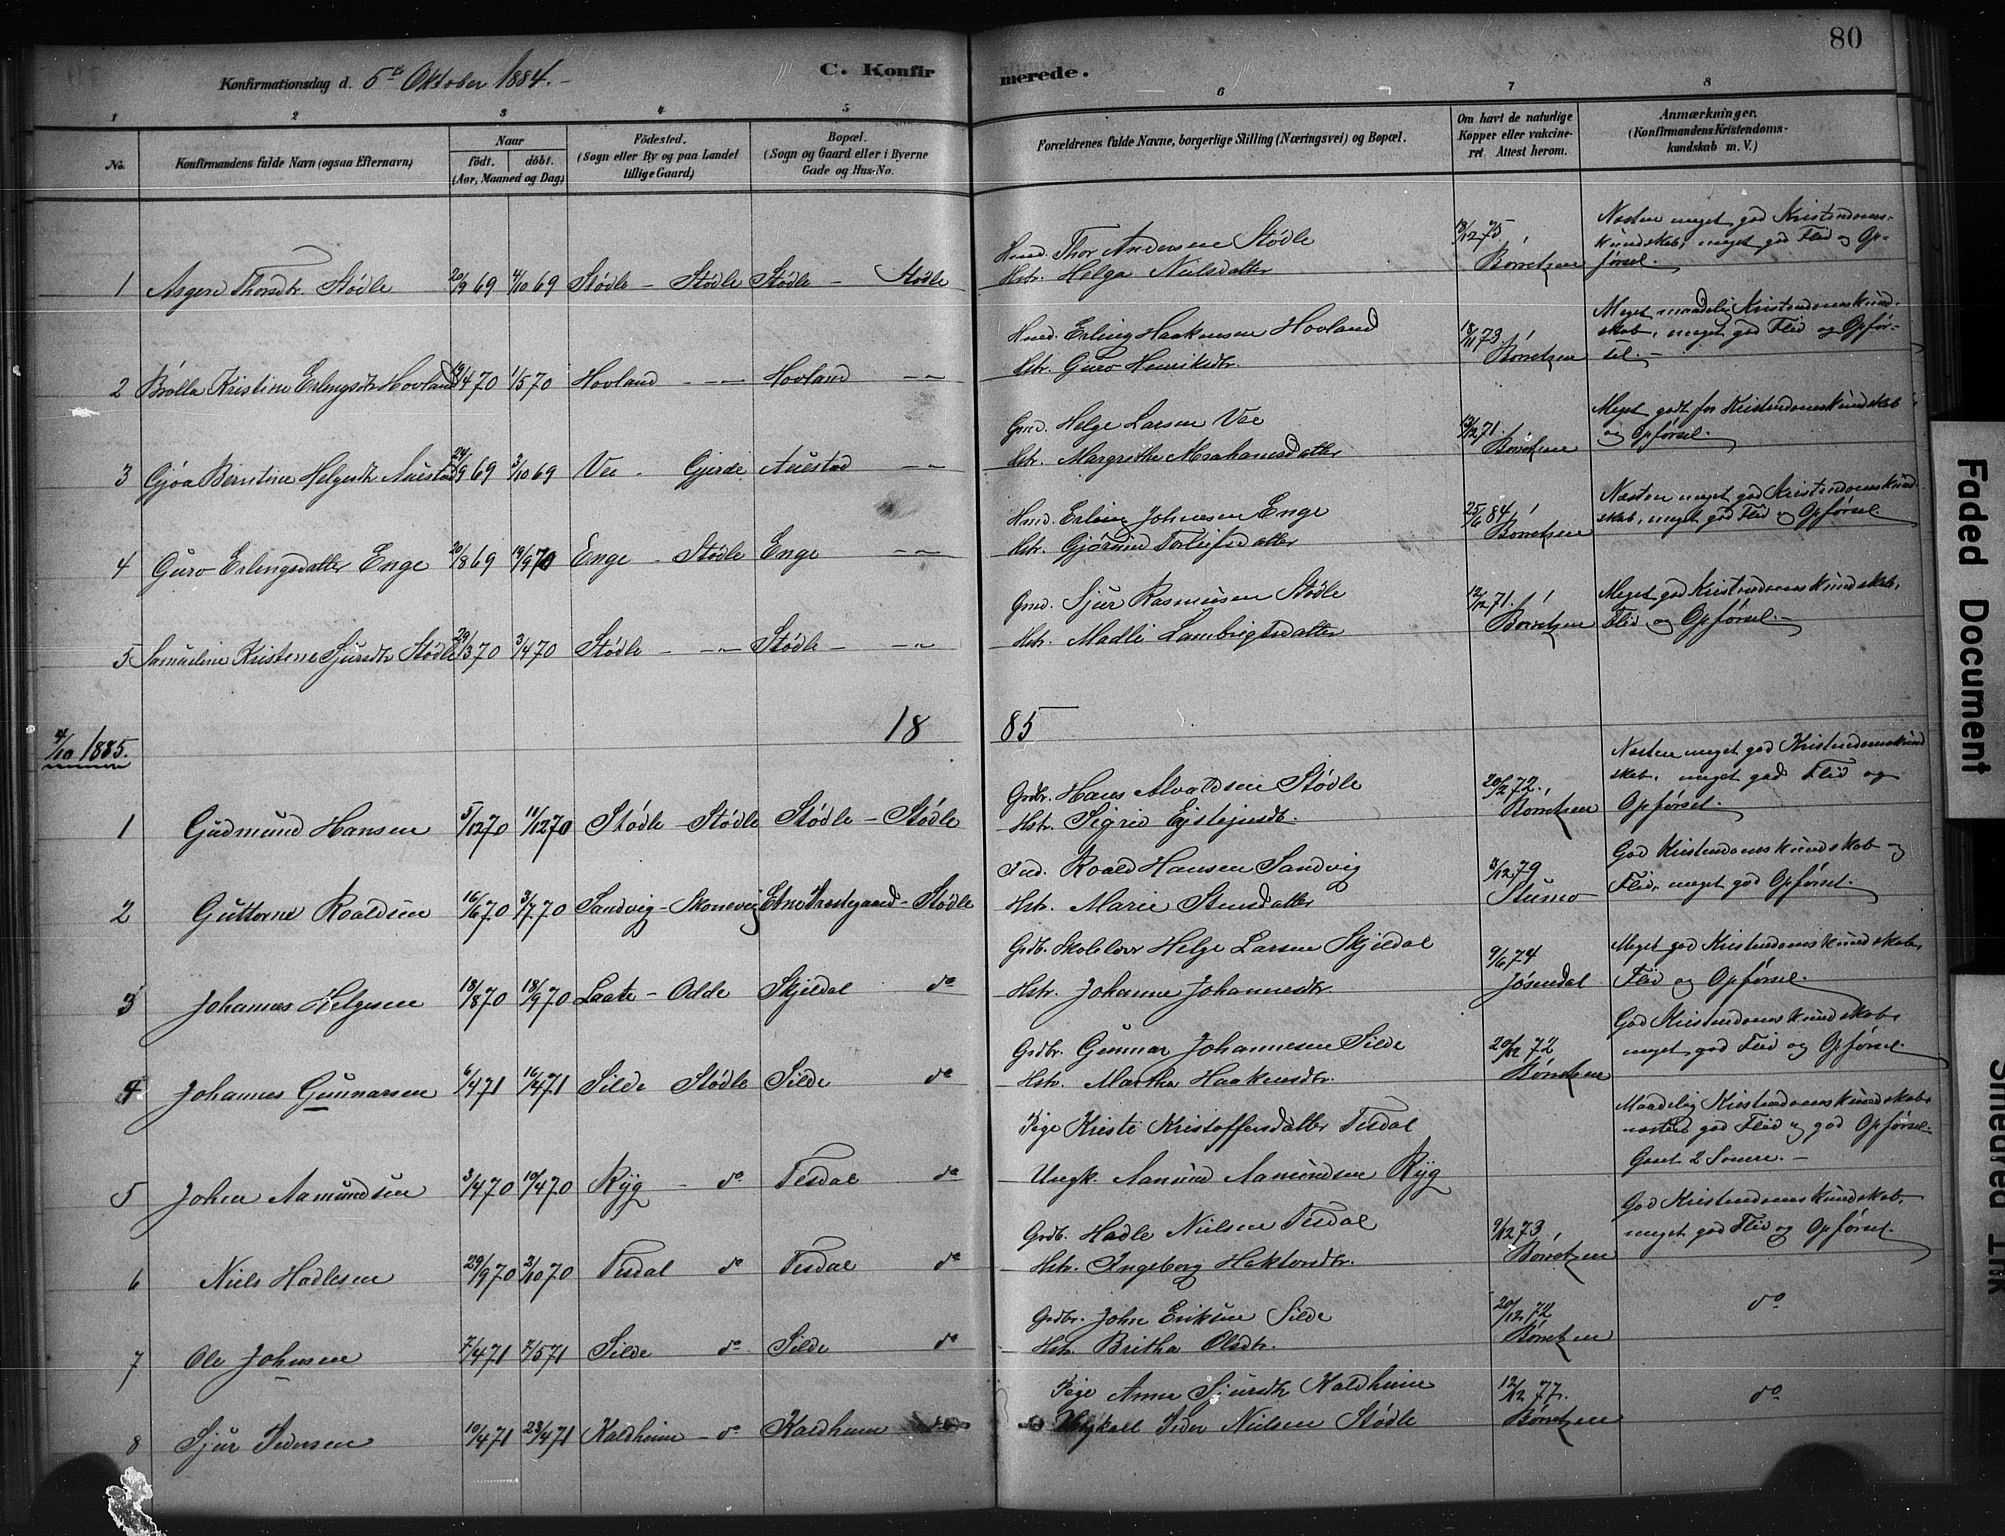 80
Konfirmationsdag d. 5te Oktober 1884.-
C. Konfir merede.
1 2 3 4 5 6 7 8
No. Konfirmandens fulde Navn (ogsaa Efternavn) Naar födt. döbt. (Aar, Maaned og Dag) Födested. (Sogn eller By og paa Landet tillige Gaard) Bopæl. (Sogn og Gaard eller i Byerne Gade og Hus-No. Forældrenes fulde Navne, borgerlige Stilling (Næringsvei) og Bopæl. Om havt de naturlige Kopper eller vakcineret Attest herom. Anmærkninger. (Konfirmandens Kristendomskundskab m. V.)
Hmd. Thor Andersen Stødle 18/12 75 Næsten meget god Kristendoms-
kundskab, meget god Flid og Op-
1 Asgerd Thorsdtr. Stødle 20/9 69 4/10 69 Stødle - Stødle Stødle - Stødle Hstr. Helga Nielsdatter Børretzen førsel.
Hmd. Erling Haakensen Hovland 18/11 73. Meget maadelig Kristendomskund-
skab, meget god Flid og Opfør-
2 Brølla Kristine Erlingsdtr Hovland 19/4 70 1/5 70 Hovland -"- Hovland -"- Hstr. Guro Henriksdtr. Børretzen sel.-
Gmd. Helge Larsen Vee 12/12 71. Meget godt for Kristendomskundskab
og Opførsel.
3 Gjøa Berntine Helgesdtr Auestad 24/9 69 3/10 69 Vee - Gjerde Auestad -"- Hstr. Margrethe Abrahamsdatter Børretzen
Hmd. Erling Johnesen Enge 25/6 84 Næsten meget god Kristendomskund-
skab, meget god Flid og Opførsel.
4 Guro Erlingsdatter Enge 20/8 69 19/9 70 Enge - Stødle Enge -"- Hstr. Gjørind Torleifsdatter Børretzen
Gmd. Sjur Rasmusen Stødle 12/12 71. Meget god Kristendomskundskab,
Flid og Opførsel.-
5 Samueline Kristene Sjursdtr Stødle 29/3 70 3/4 70 Stødle - -"- Stødle - -"- Hstr. Madli Lambrigtsdatter Børretzen
4/10 1885. 18 85
Grdbr. Hans Alvaldsen Stødle 20/12 72. Næsten meget god Kristendomskund
skab, meget god Flid og
1 Gudmund Hansen 5/12 70 11/12 70 Stødle - Stødle Stødle - Stødle Hstr. Sigrid Ejstejnsdtr. Børretzen Opførsel.
Ind. Roald Hansen Sandvig 3/12 79 God Kristendomskundskab og
2 Guttorm Roaldsen 16/6 70 3/7 70 Sandvig - Skonevig Etne Prestegaard - Stødle Hstr. Marie Stensdatter Stumo Flid, meget god Opførsel.
Grdb. Skolelærer Helge Larsen Skjeldal 9/6 74 Meget god Kristendomskundskab,
3 Johannes Helgesen 18/8 70 18/9 70 Laate - Odde Skjeldal do Hstr. Johanne Johannesdtr. Jøsendal Flid og Opførsel.
Grdbr. Gunnar Johannesen Silde 20/12 72 God Kristendomskundskab,
meget god Flid og Opførsel.
4 Johannes Gunnarsen 6/4 71 16/4 71 Silde Stødle Silde do Hstr. Martha Haakensdtr. Børretzen
Pige Kristi Kristoffersdatter Tesdal Maadelig Kristendomskundskab,
næsten god Flid og god Opførsel-
Gaaet 2 Somre.-
5 John Aamundsen 3/4 70 10/4 70 Ryg - do Tesdal do Ungk. Aamund Aamundsen Ryg
Grdb. Hadle Nielsen Tesdal 9/12 73 God Kristendomskundskab,
meget god Flid og Opførsel.
6 Niels Hadlesen 29/9 70 2/10 70 Tesdal do Tesdal do Hstr. Ingeborg Haktorsdtr. Børretzen
Grdbr. John Eriksen Silde 20/12 72 do
7 Ole Johnsen 7/4 71 7/5 71 Silde do Silde do Hstr. Britha Olsdtr. Børretzen
Pige Anna Sjursdtr Kaldheim 12/12 77. do
8 Sjur Pedersen 10/4 71 23/4 71 Kaldheim - do Kaldheim do Peder Nielsen Stødle Børretzen
Faded Document
Smeared Ink